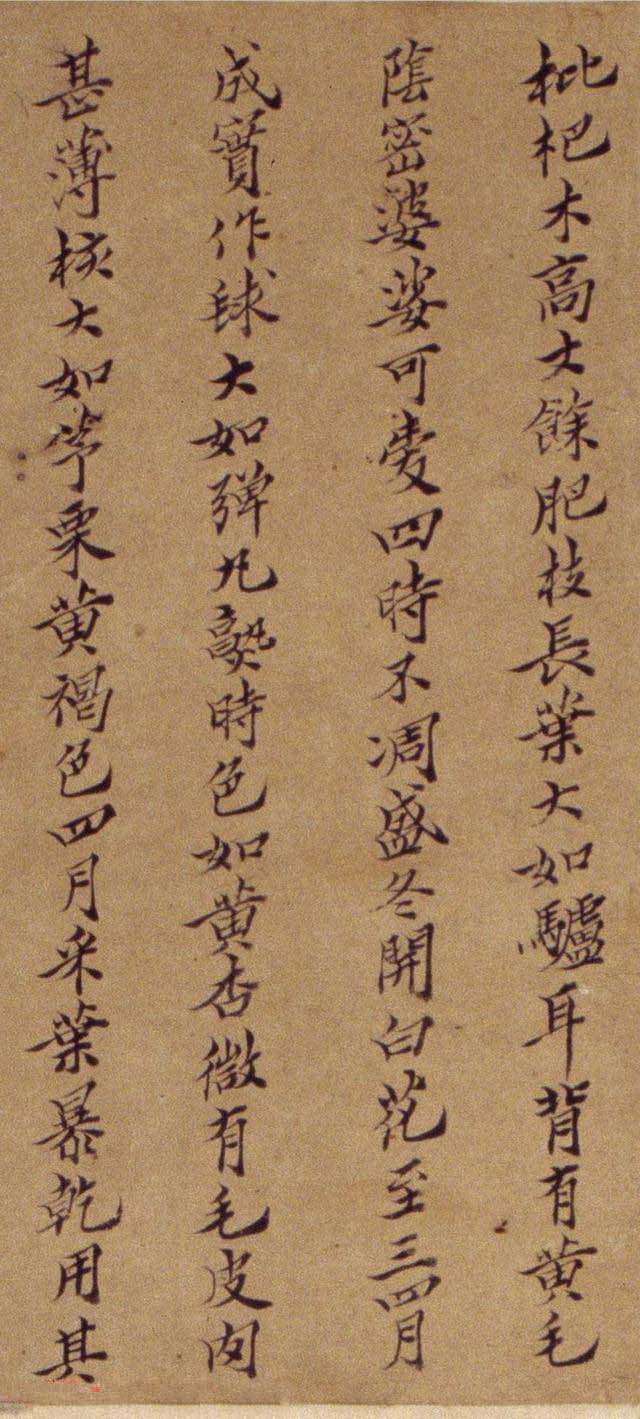 枇杷木高丈餘肥枝長葉大如驢耳背有黄毛
陰密婆娑可愛四時不凋盛冬開白花至三四月
成實作毬大如彈丸熟時色如黄杏微有毛皮肉
甚薄核大如茅栗黄褐色四月采葉暴乾用其